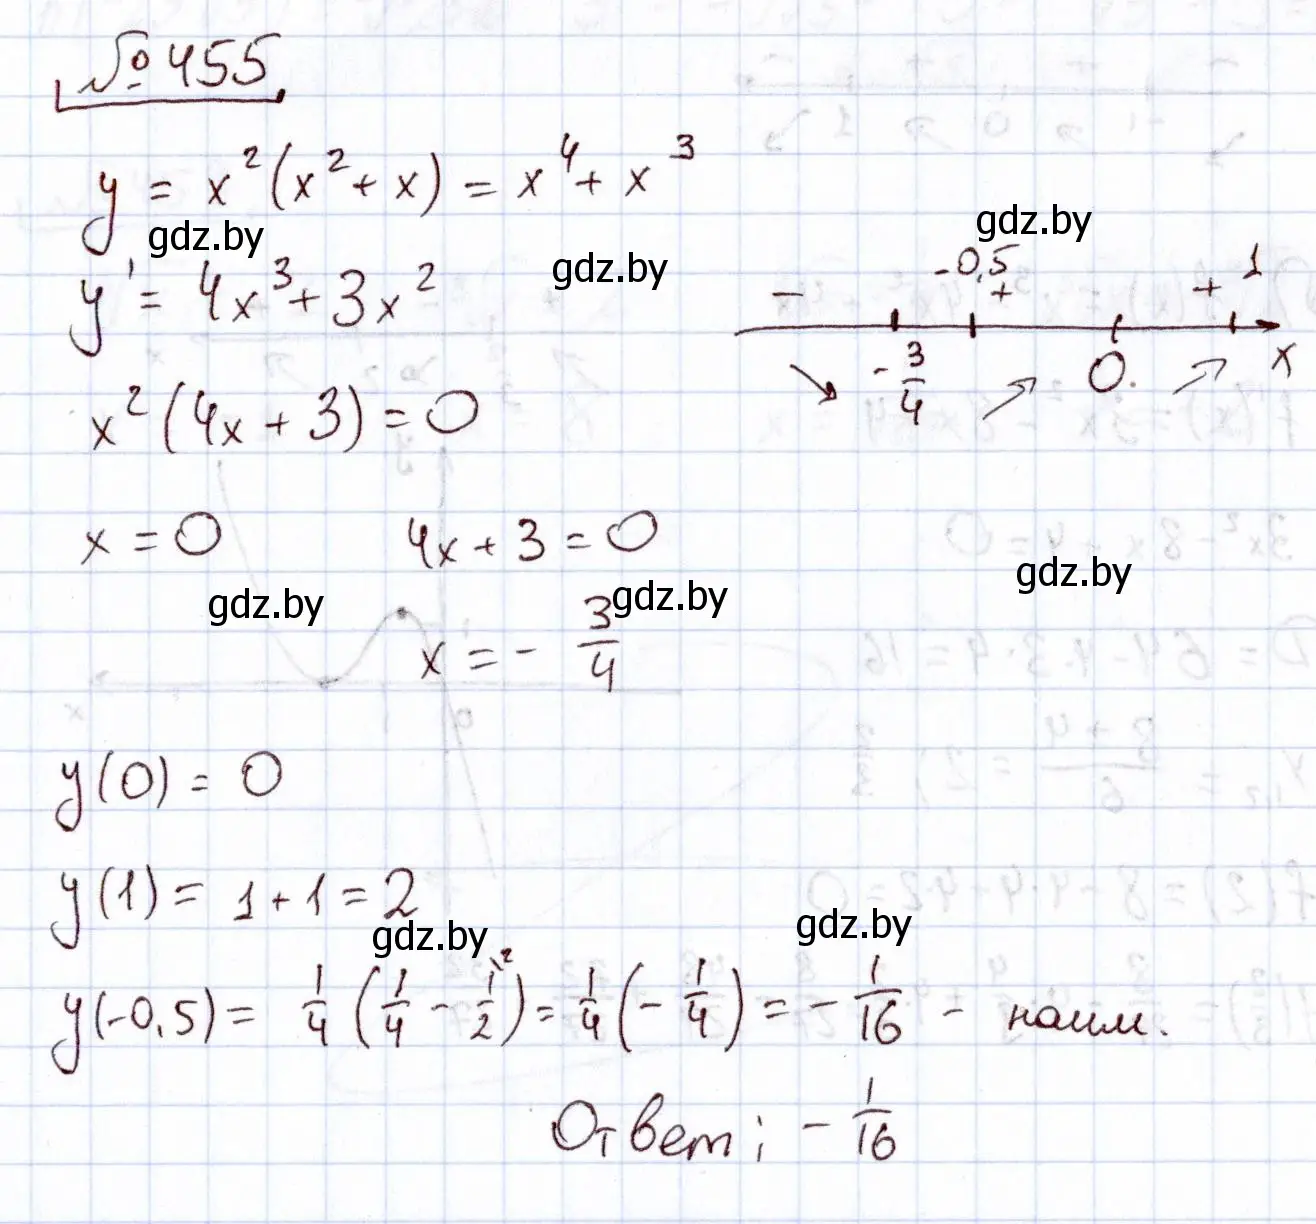 № 455
y = x²(x² + x) = x⁴ + x³
gdz.by gdz.by gdz.by
y' = 4x³ + 3x²
- -0,5 + + 1
-3/4 0 x
x²(4x + 3) = 0
x = 0 4x + 3 = 0
gdz.by gdz.by gdz.by
x = - 3/4
y(0) = 0
y(1) = 1 + 1 = 2
gdz.by gdz.by
y(-0,5) = 1/4 (1/4 - 1/2\²) = 1/4 (- 1/4) = - 1/16 - наим.
Ответ: - 1/16